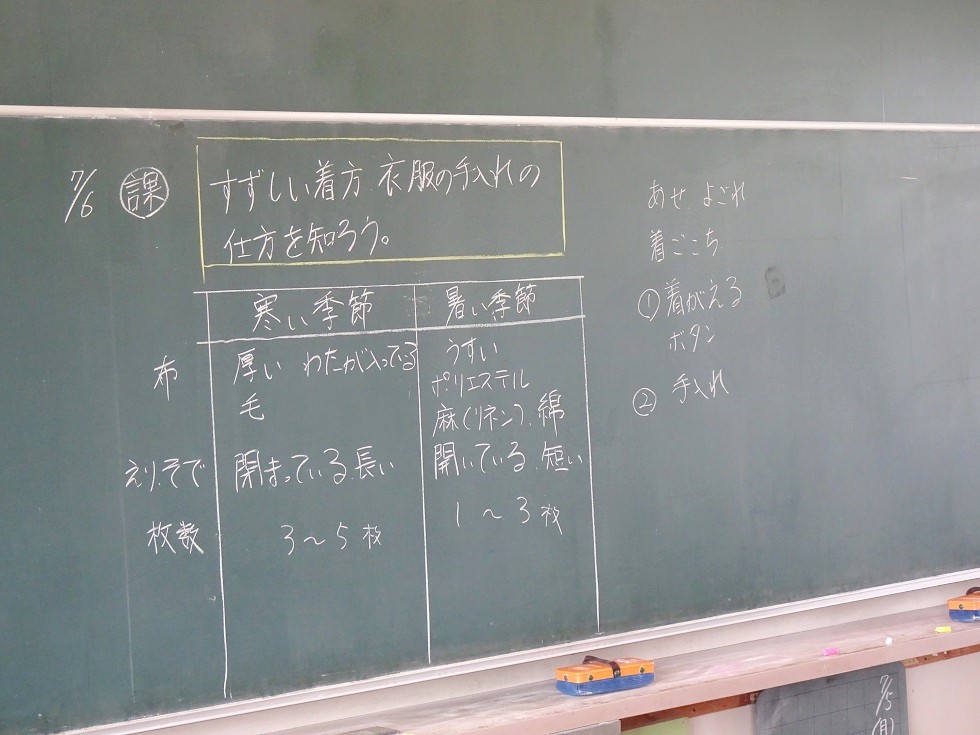 7/6 課 すずしい着方、衣服の手入れの
仕方を知ろう。
寒い季節 暑い季節
布 厚い わたが入ってる うすい
毛 ポリエステル
麻(リネン)、綿
えり、そで 閉まっている、長い 開いている、短い
枚数 3~5枚 1~3枚
あせ よごれ
着ごこち
① 着がえる
ボタン
② 手入れ
7/5
(月)